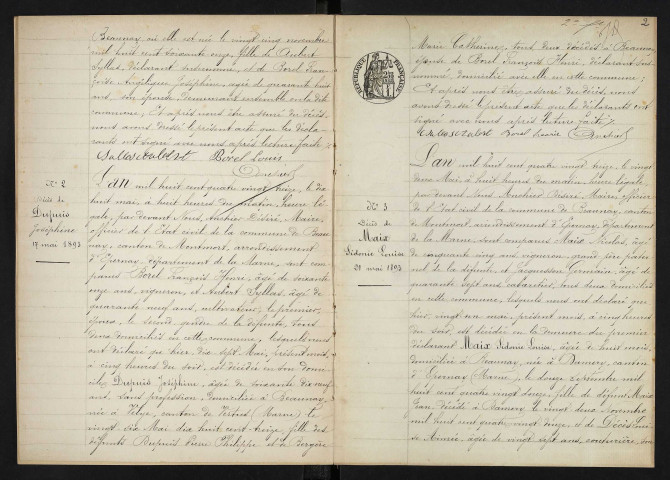 Beaunay où elle est née le vingt cinq novembre
mil huit cent soixante onze, fille de Aubert
Syllas, déclarant susnommé, et de Borel
Joséphine, âgée de quarante huit
ans, son épouse, demeurant ensemble en cette
commune; Et après nous être assuré du décès,
nous avons dressé le présent acte que les décla-
rants ont signé avec nous après lecture faite.
Borel Louis
N° 2
Décès de
Dupuis
Joséphine
17 mai 1893
L'an mil huit cent quatre vingt treize, le dix
huit mai, à huit heures du matin, heure lé-
gale, par devant Nous, Désiré, Maire,
officier de l'état civil de la commune de Beau
nay, canton de Montmort, arrondissement
d'Epernay, département de la Marne, ont com
parus Borel François Henri, âgé de soixante
onze ans, vigneron, et Aubert Syllas, âgé de
quarante neuf ans, cultivateur, le premier,
époux, le second gendre de la défunte, tous
deux domiciliés en cette commune, lesquels nous
ont déclaré que hier, dix sept Mai, présent mois,
à cinq heures du soir, est décédée en son domi-
cile, Dupuis Joséphine, âgée de soixante dix neuf
ans, sans profession, domiciliée à Beaunay,
née à canton de Vertus (Marne) le
vingt dix Mai dix huit cent treize, fille des
défunts Dupuis Pierre Philippe et de
2
Marie Catherine, tous deux décédés à Beaunay
épouse de Borel François Henri, déclarant sus
nommé, domicilié avec elle en cette commune;
Et après nous être assuré du décès, nous
avons dressé le présent acte que les déclarants ont
signé avec nous après lecture faite.
REPUBLIQUE FRANÇAISE
N° 3
Décès de
Maix
Sidonie Louise
21 mai 1893
L'an mil huit cent quatre vingt treize, le vingt
deux Mai, à huit heures du matin, heure légale,
par devant Nous Désiré, Maire, officier
de l'Etat civil de la commune de Beaunay, canton
de Montmort, arrondissement d'Epernay, département
de la Marne, sont comparus Maix Nicolas, âgé
de cinquante cinq ans, vigneron, grand père pater
nel de la défunte, et Germain, âgé de
quarante sept ans, cabaretier, tous deux domiciliés
en cette commune, lesquels nous ont déclaré que
hier, vingt un mai, présent mois, à cinq heures
du soir, est décédée en la demeure du premier
déclarant Maix Sidonie Louise, âgée de huit mois,
domiciliée à Beaunay, née à Damery, canton
d'Epernay (Marne), le douze septembre mil
huit cent quatre vingt douze, fille de défunt Maix
Jean, décédé à Damery le vingt deux novembre
mil huit cent quatre vingt douze, et de
Aimée, âgée de vingt sept ans, couturière, son